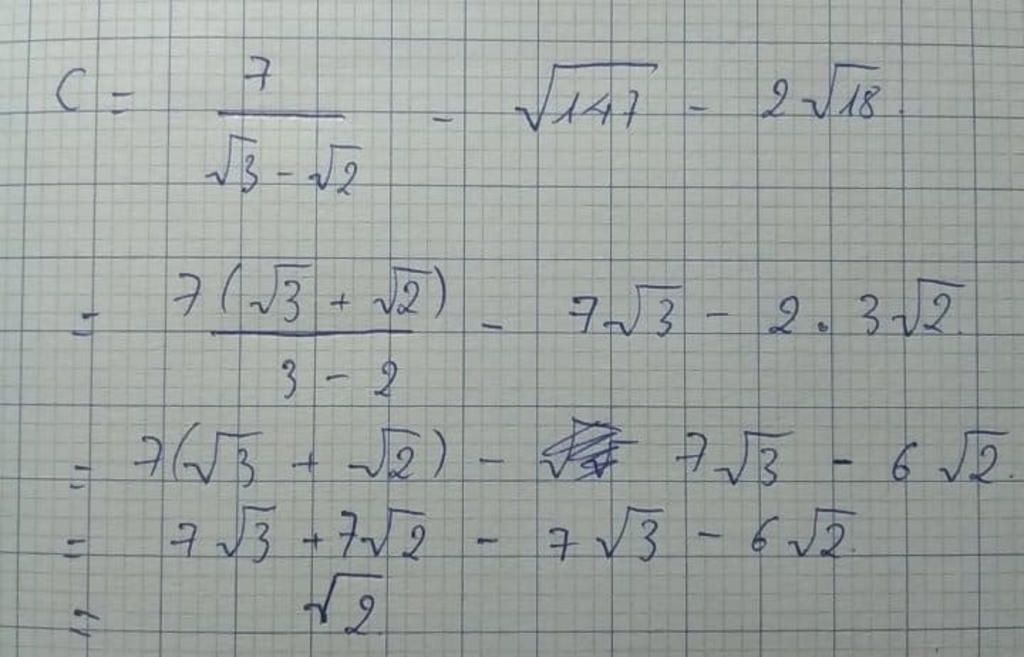 C = 7 / (√3 - √2) - √147 - 2√18.
= 7(√3 + √2) / (3 - 2) - 7√3 - 2 . 3√2.
= 7(√3 + √2) - 7√3 - 6√2.
= 7√3 + 7√2 - 7√3 - 6√2.
= √2